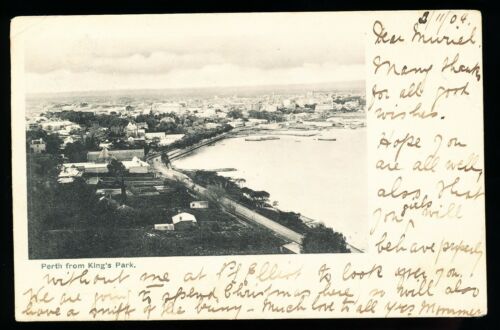 3/11/04.
Dear Muriel.
Many thanks
for all good
wishes.
Hope you
are all well,
also that
you girls will
behave properly
Perth from King's Park.
without me at Pt Elliot to look over you
We are going to spend Christmas here so will also
have a sniff of the briny - Much love to all Yrs